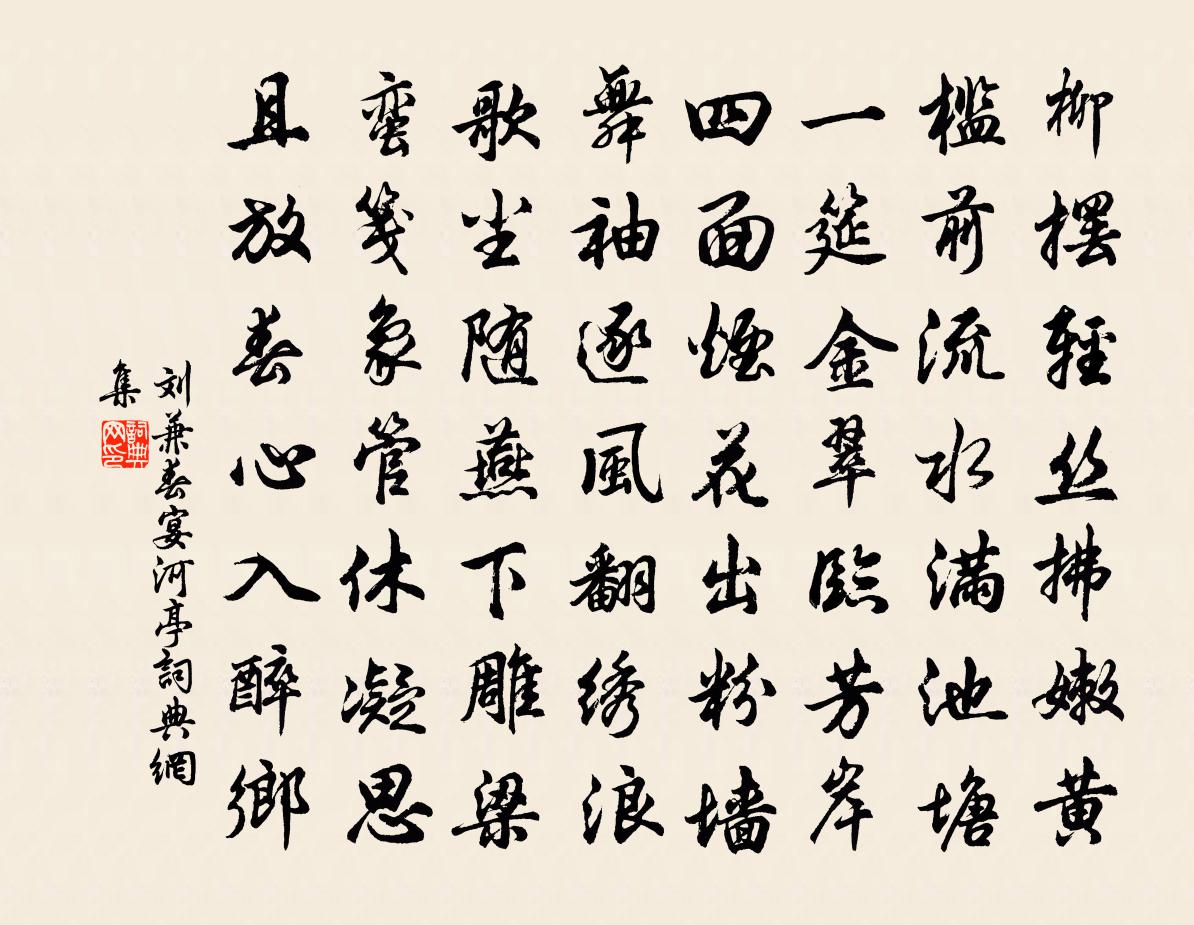 柳摆輕丝拂嫩黄
檻前流水满池塘
一筵金翠臨芳岸
四面煙花出粉墙
舞袖逐風翻绣浪
歌尘随燕下雕梁
蛮箋象管休凝思
且放春心入醉鄉
刘兼春宴河亭詞典網
集
詞典网印